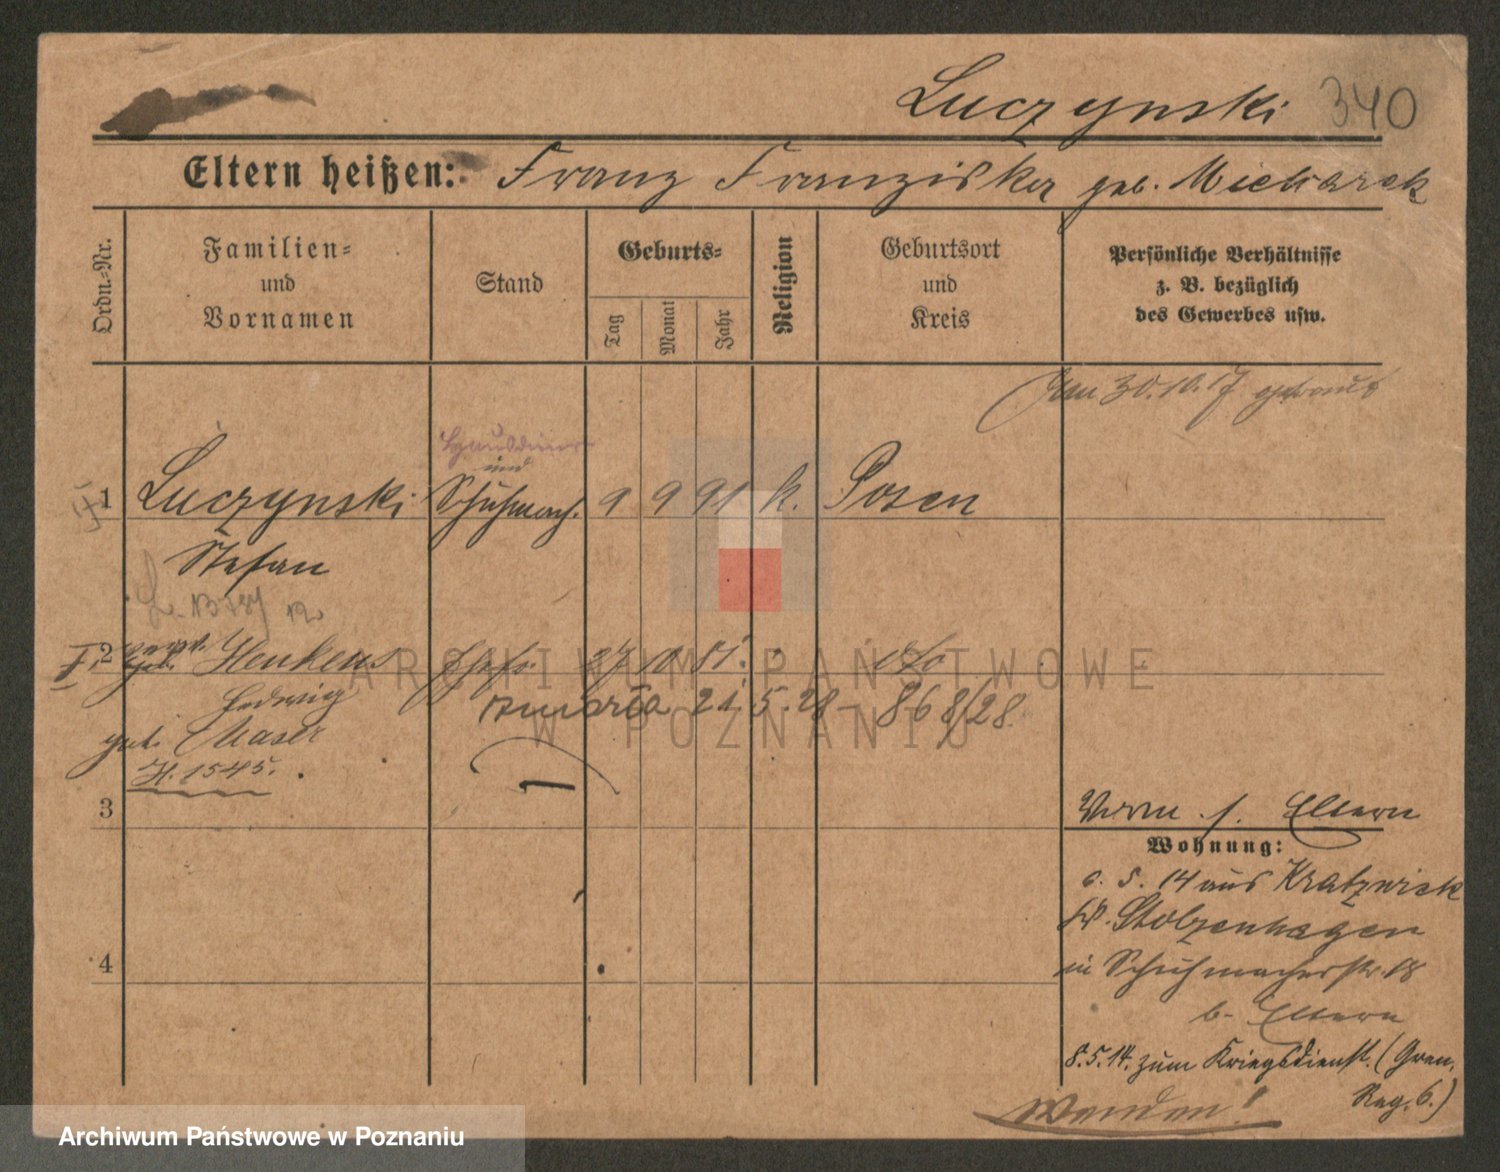 Luczynski 340
Eltern heißen: Franz Franziska geb. Michalak
Ordn.-Nr.
Familien-
und
Vornamen
Stand
Geburts-
Tag
Monat
Jahr
Religion
Geburtsort
und
Kreis
Persönliche Verhältnisse
z. B. bezüglich
des Gewerbes usw.
Am 30.10.17 getraut
Hausdiener
und
1 Luczynski Schuhmach. 9 9 91 k. Posen
Stefan
2 verw. Henkens Ehefr. 27 10 81. do
geb.
Hedwig
zmarła 21.5.28 - 868/28
geb. Maser
H. 1545.
3
Worm. s. Eltern
Wohnung:
6. 5. 14 aus Kratzwiek
Kr. Stolzenhagen
in Schuhmacherstr. 18
b. Eltern
4
8.5.14. zum Kriegsdienst. (Gren.
Reg. 6.)
Wenden!
ARCHIWUM PAŃSTWOWE
W POZNANIU
Archiwum Państwowe w Poznaniu